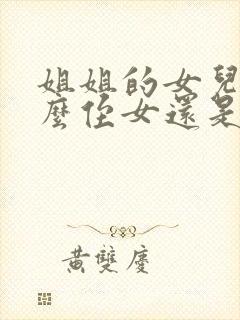 姐姐的女兒
麼侄女還是
黃雙慶